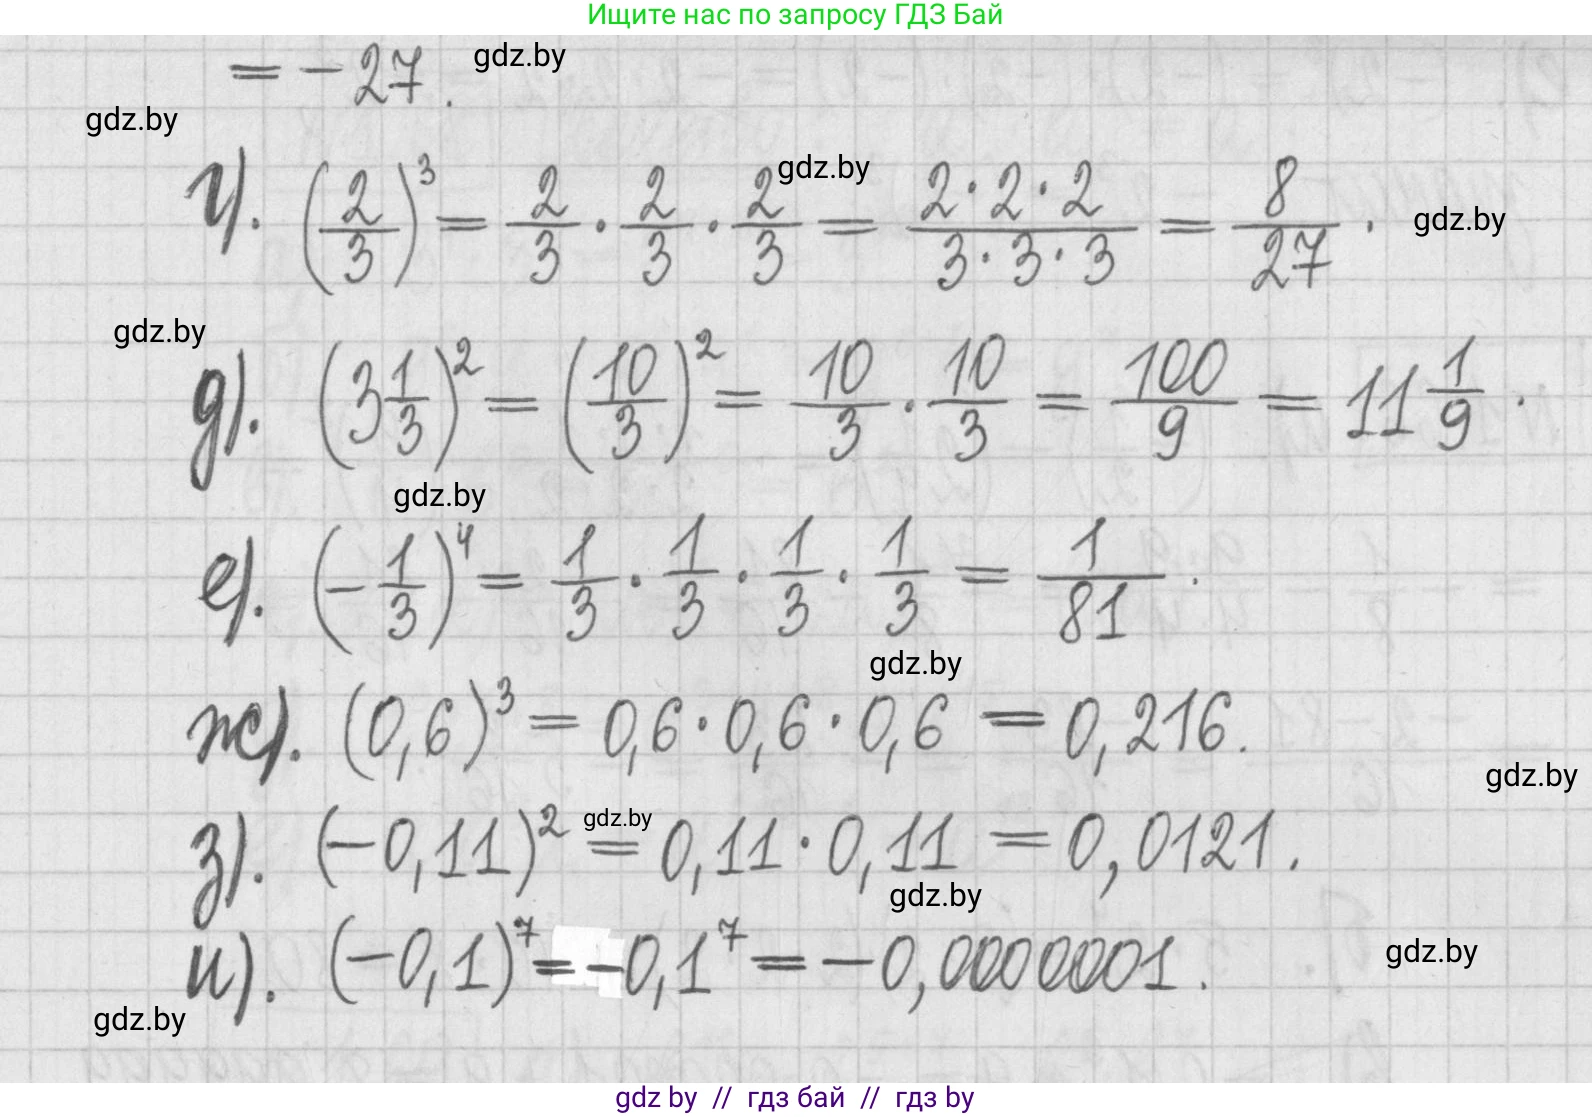 Ищите нас по запросу ГДЗ Бай
= -27.
gdz.by
gdz.by
г). (2/3)³ = 2/3 · 2/3 · 2/3 = 2·2·2/3·3·3 = 8/27.
gdz.by
gdz.by
gdz.by
д). (3 1/3)² = (10/3)² = 10/3 · 10/3 = 100/9 = 11 1/9.
gdz.by
е). (-1/3)⁴ = 1/3 · 1/3 · 1/3 · 1/3 = 1/81.
gdz.by
ж). (0,6)³ = 0,6 · 0,6 · 0,6 = 0,216.
gdz.by
з). (-0,11)² = 0,11 · 0,11 = 0,0121.
gdz.by
gdz.by
и). (-0,1)⁷ = -0,1⁷ = -0,0000001.
gdz.by
gdz.by
gdz by // гдз бай // гдз by